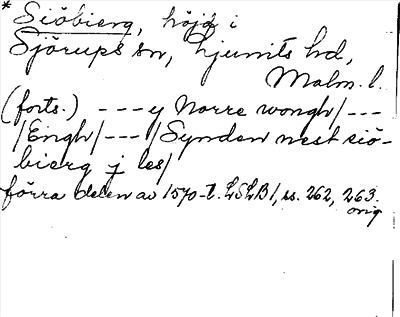 * Siöbierg, höjd i
Sjörups sn, Ljunits hd,
Malm. l.
(forts.) --- y Norre wongh/ ---
/Engh/ --- /Synden nest siö-
bierg j les/
förra delen av 1570-t. LSLB 1, ss. 262, 263.
orig